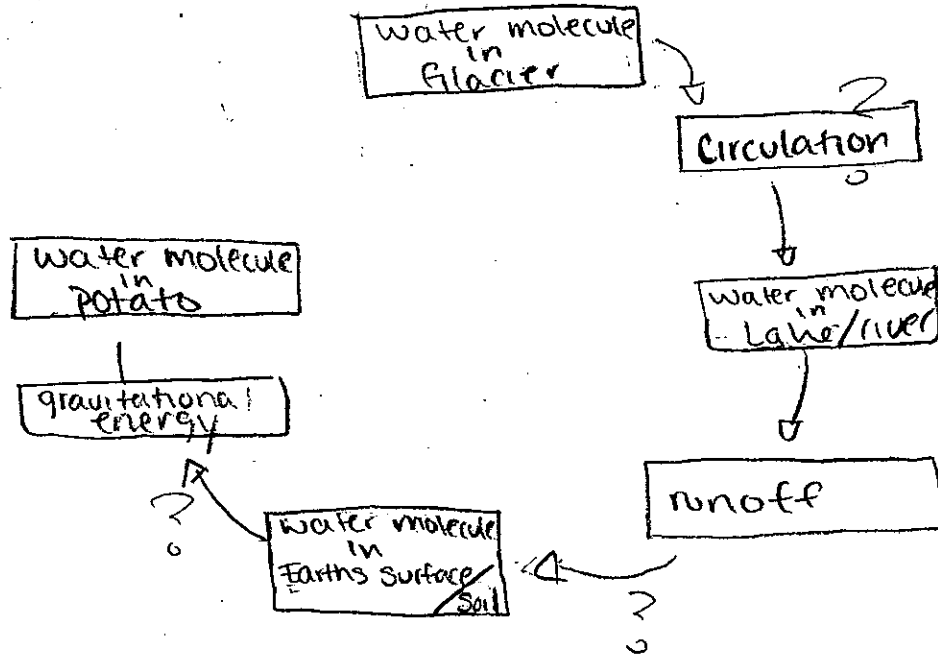 water molecule
in
Glacier
?
Circulation
water molecule
in
Lake/river
runoff
?
water molecule
in
Earths surface/
Soil
?
gravitational
energy
water molecule
in
Potato